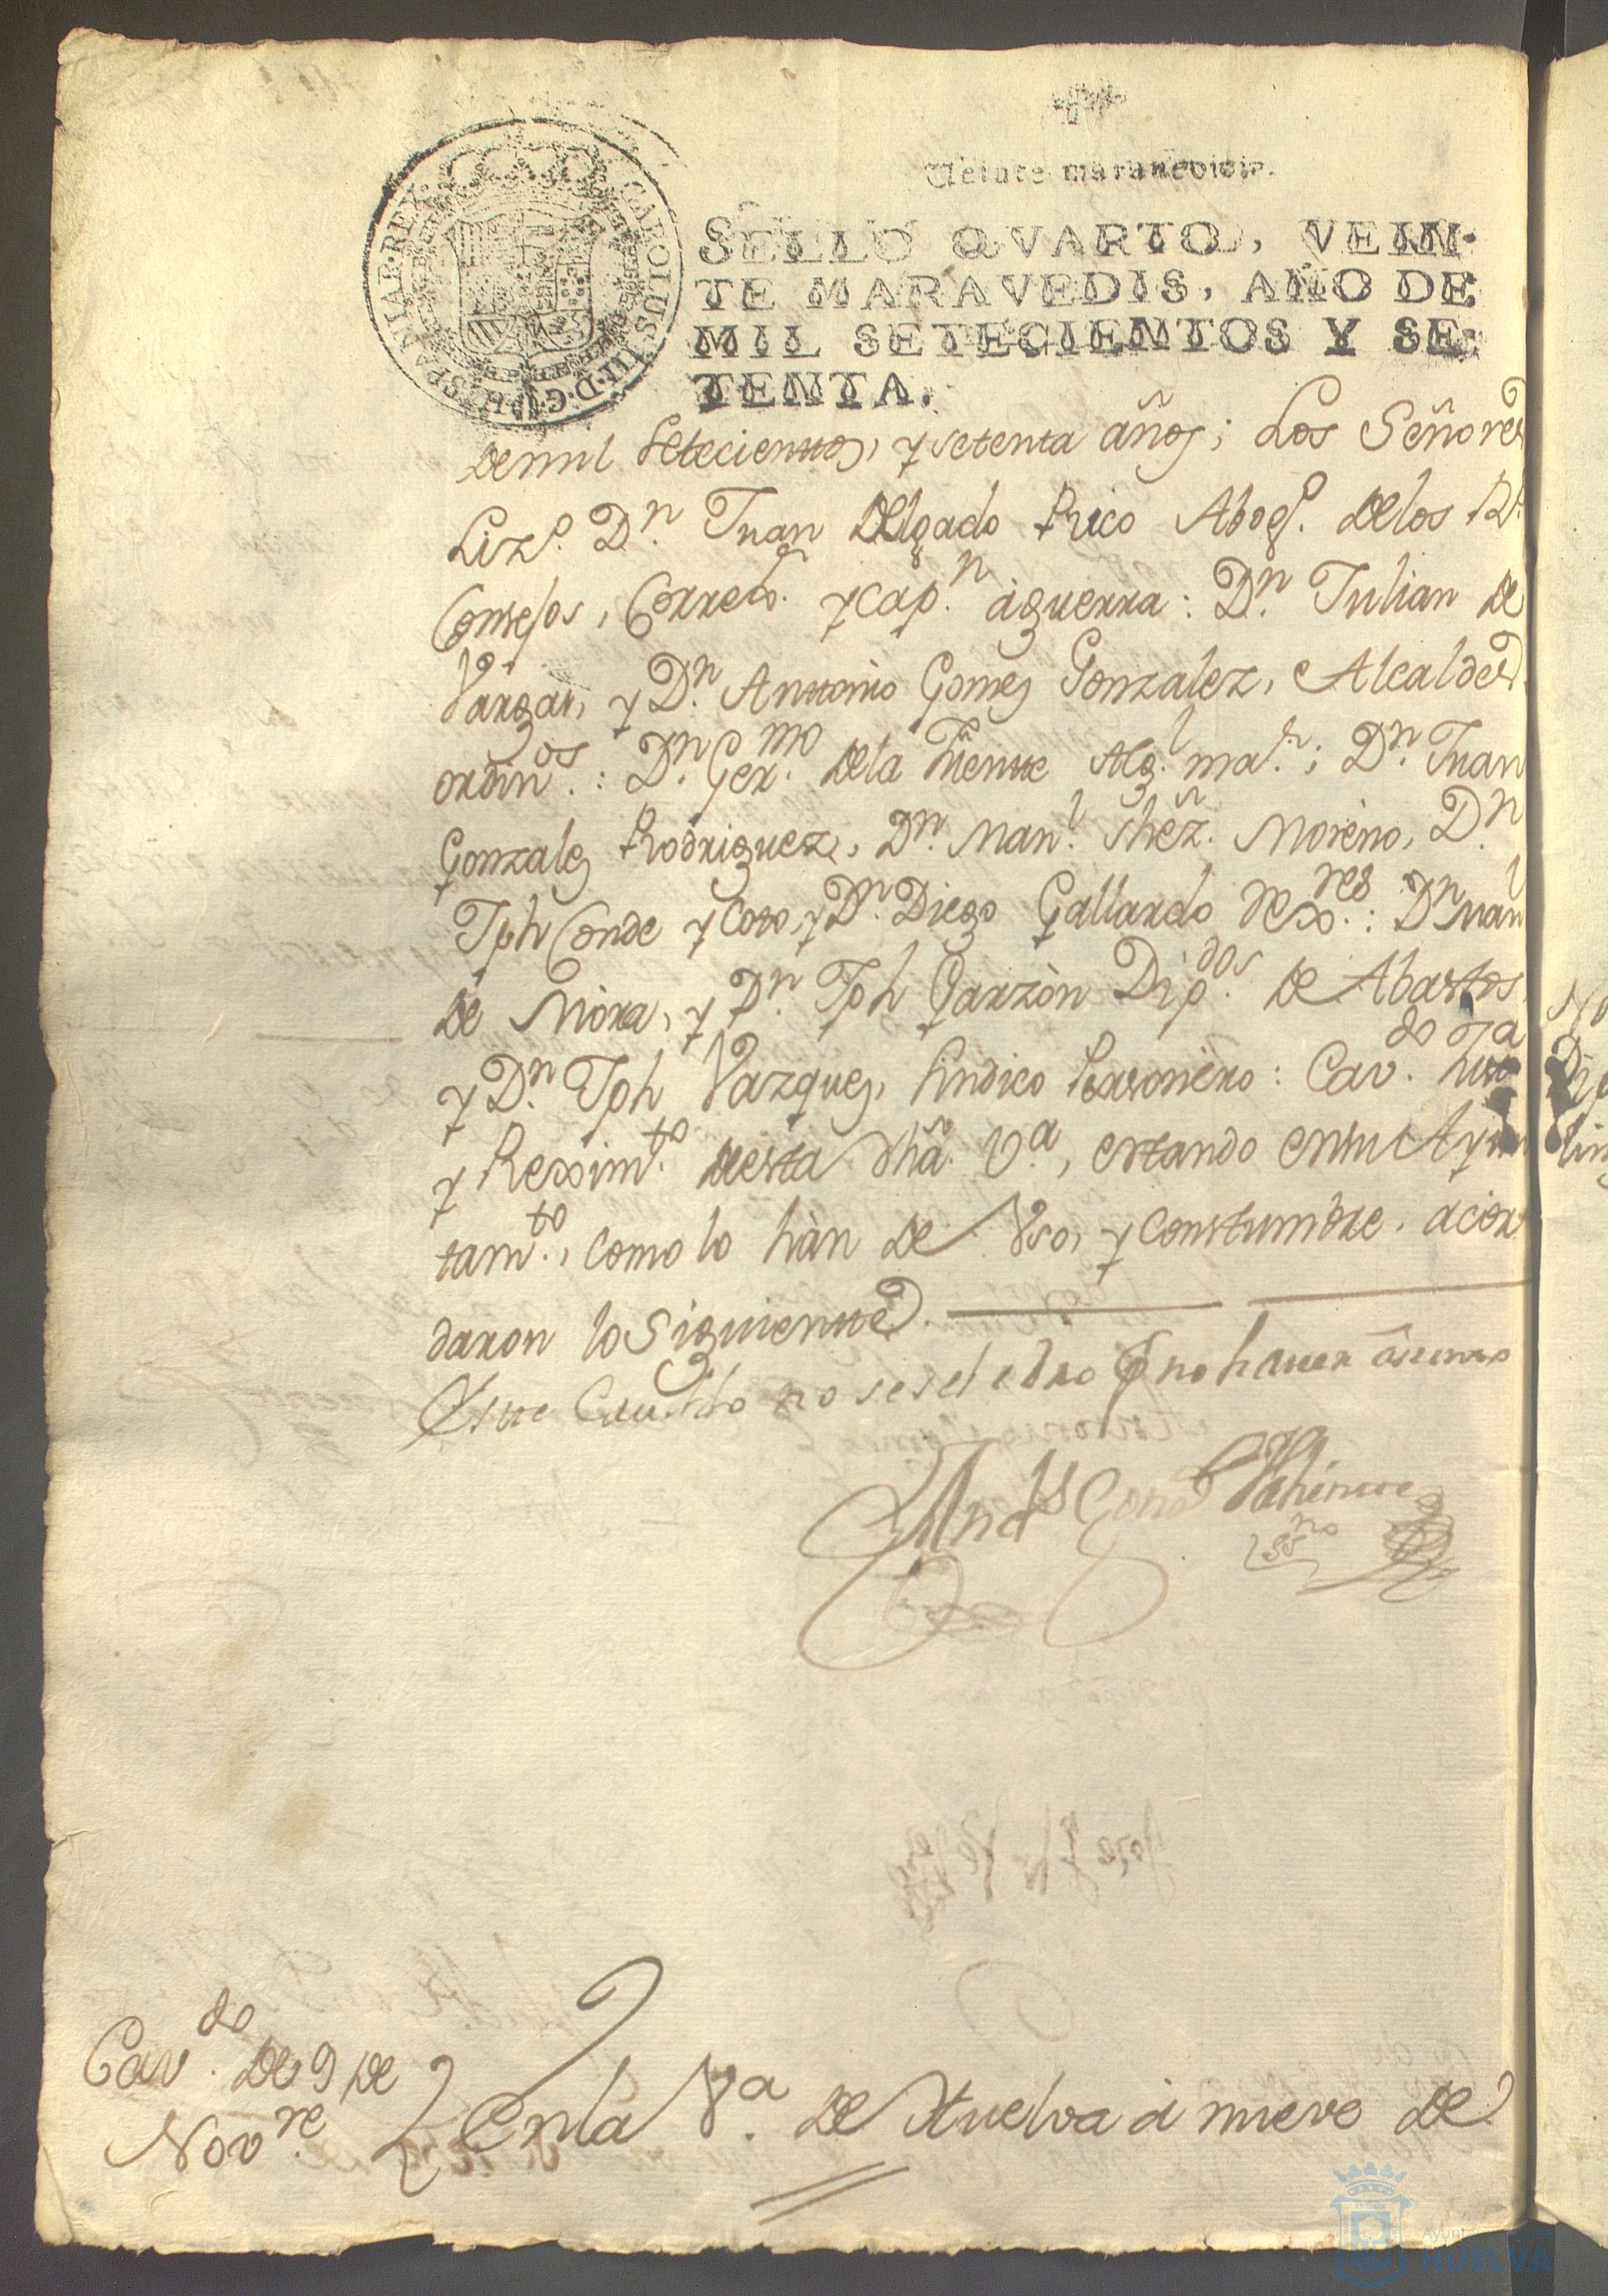 CAROLUS III D.G. HISPANIAR. REX.
Veinte maravedis.
SELLO QVARTO, VEIN-
TE MARAVEDIS, AÑO DE
MIL SETECIENTOS Y SE-
TENTA.
de mil setecientos, y setenta años; Los Señores
Lizdo. Dn. Juan Delgado Rico Abogdo. de los Rs.
Consejos, Correxor. y Capn. á guerra: Dn. Julian de
Vargas, y Dn. Antonio Gomez Gonzalez, Alcaldes
ordinos.: Dn. Germo. de la Fuente Algl. mar.; Dn. Juan
Gonzalez Rodriguez, Dn. Manl. Shez. Moreno, Dn.
Jph Conde y Coro, y Dn. Diego Gallardo Rexres.: Dn Manl
de Mora, y Dn. Jph Garzòn Dipdos. de Abastos
y Dn. Jph Vazquez, Sindico Personero: Cavdo. Justa
y Reximto. desta dha. Va., estando en su Ayun
tamto., como lo hàn de Vso, y Constumbre, acor
daron lo Siguiente.
Este Cavildo no se selebro por no haver asunto
Andrs Gonz
ssno
Cavdo. de 9 de
Novre.
En la Va. de Huelva à nueve de
HUELVA